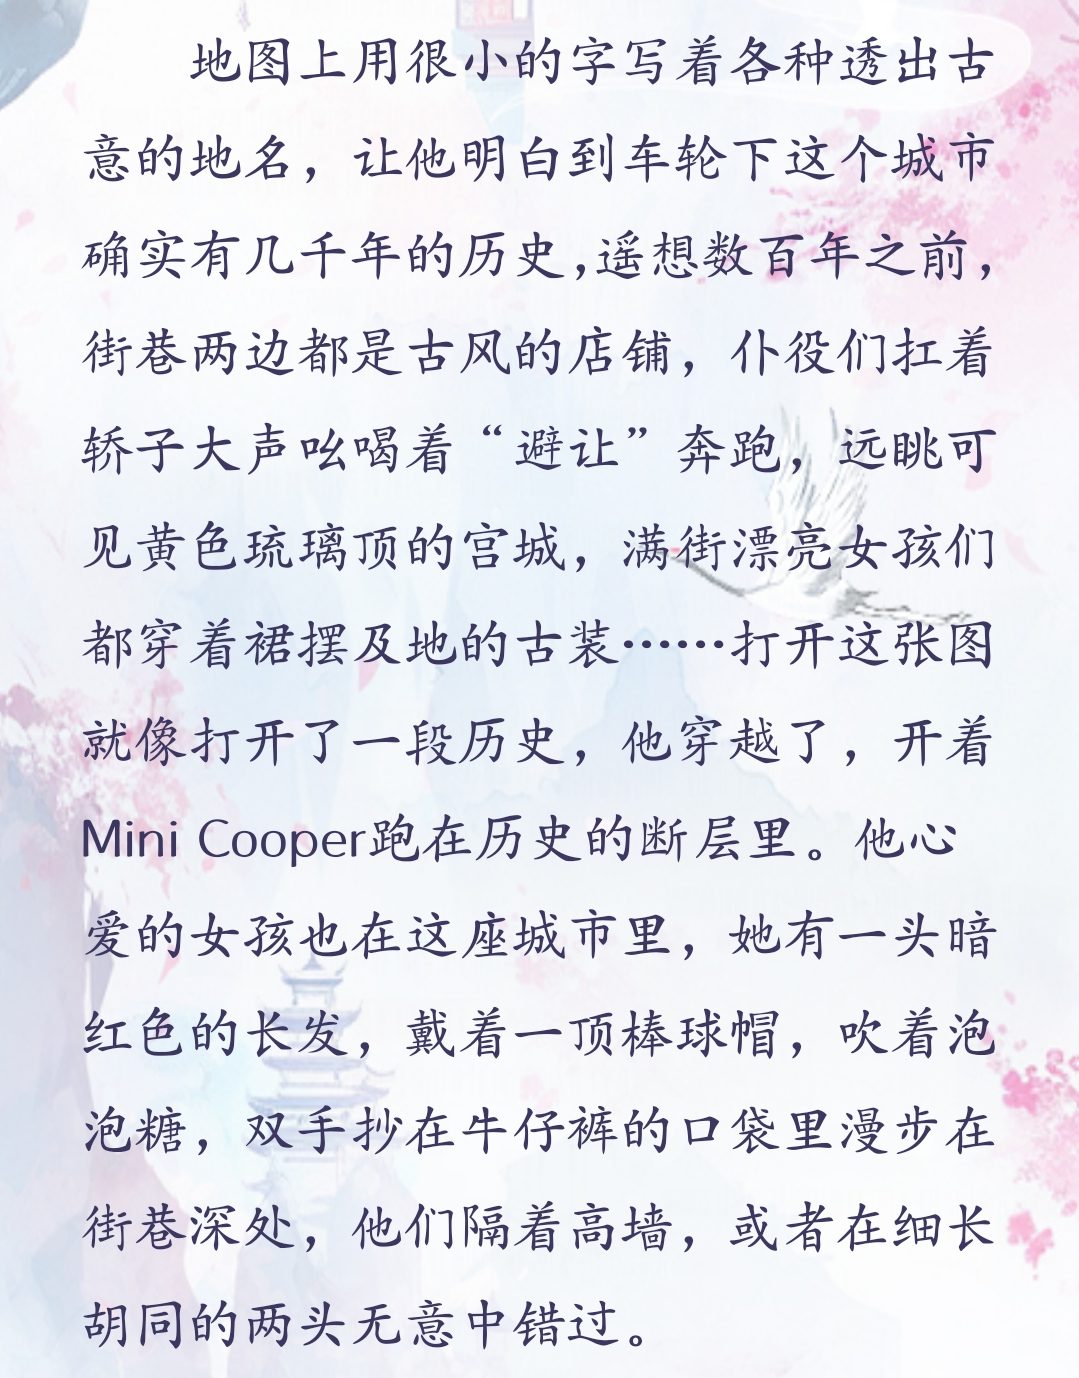 地图上用很小的字写着各种透出古
意的地名，让他明白到车轮下这个城市
确实有几千年的历史，遥想数百年之前，
街巷两边都是古风的店铺，仆役们扛着
轿子大声吆喝着“避让”奔跑，远眺可
见黄色琉璃顶的宫城，满街漂亮女孩们
都穿着裙摆及地的古装……打开这张图
就像打开了一段历史，他穿越了，开着
Mini Cooper跑在历史的断层里。他心
爱的女孩也在这座城市里，她有一头暗
红色的长发，戴着一顶棒球帽，吹着泡
泡糖，双手抄在牛仔裤的口袋里漫步在
街巷深处，他们隔着高墙，或者在细长
胡同的两头无意中错过。